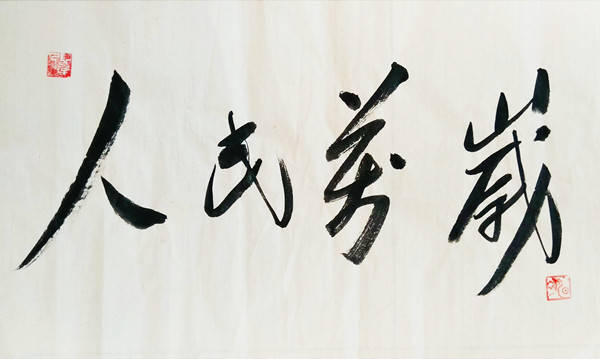 人民萬歲